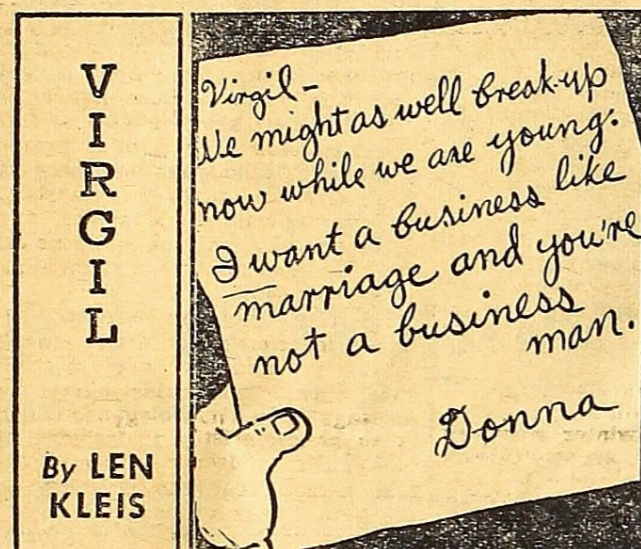 VIRGIL
By LEN
KLEIS
Virgil-
We might as well break-up
now while we are young.
I want a business like
marriage and you're
not a business
man.
Donna